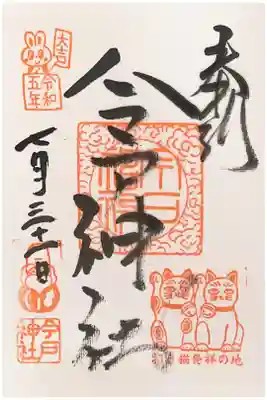 奉拝
今戸神社
大吉
令和
五年
七月三十一日
今戸
神社
猫發祥の地